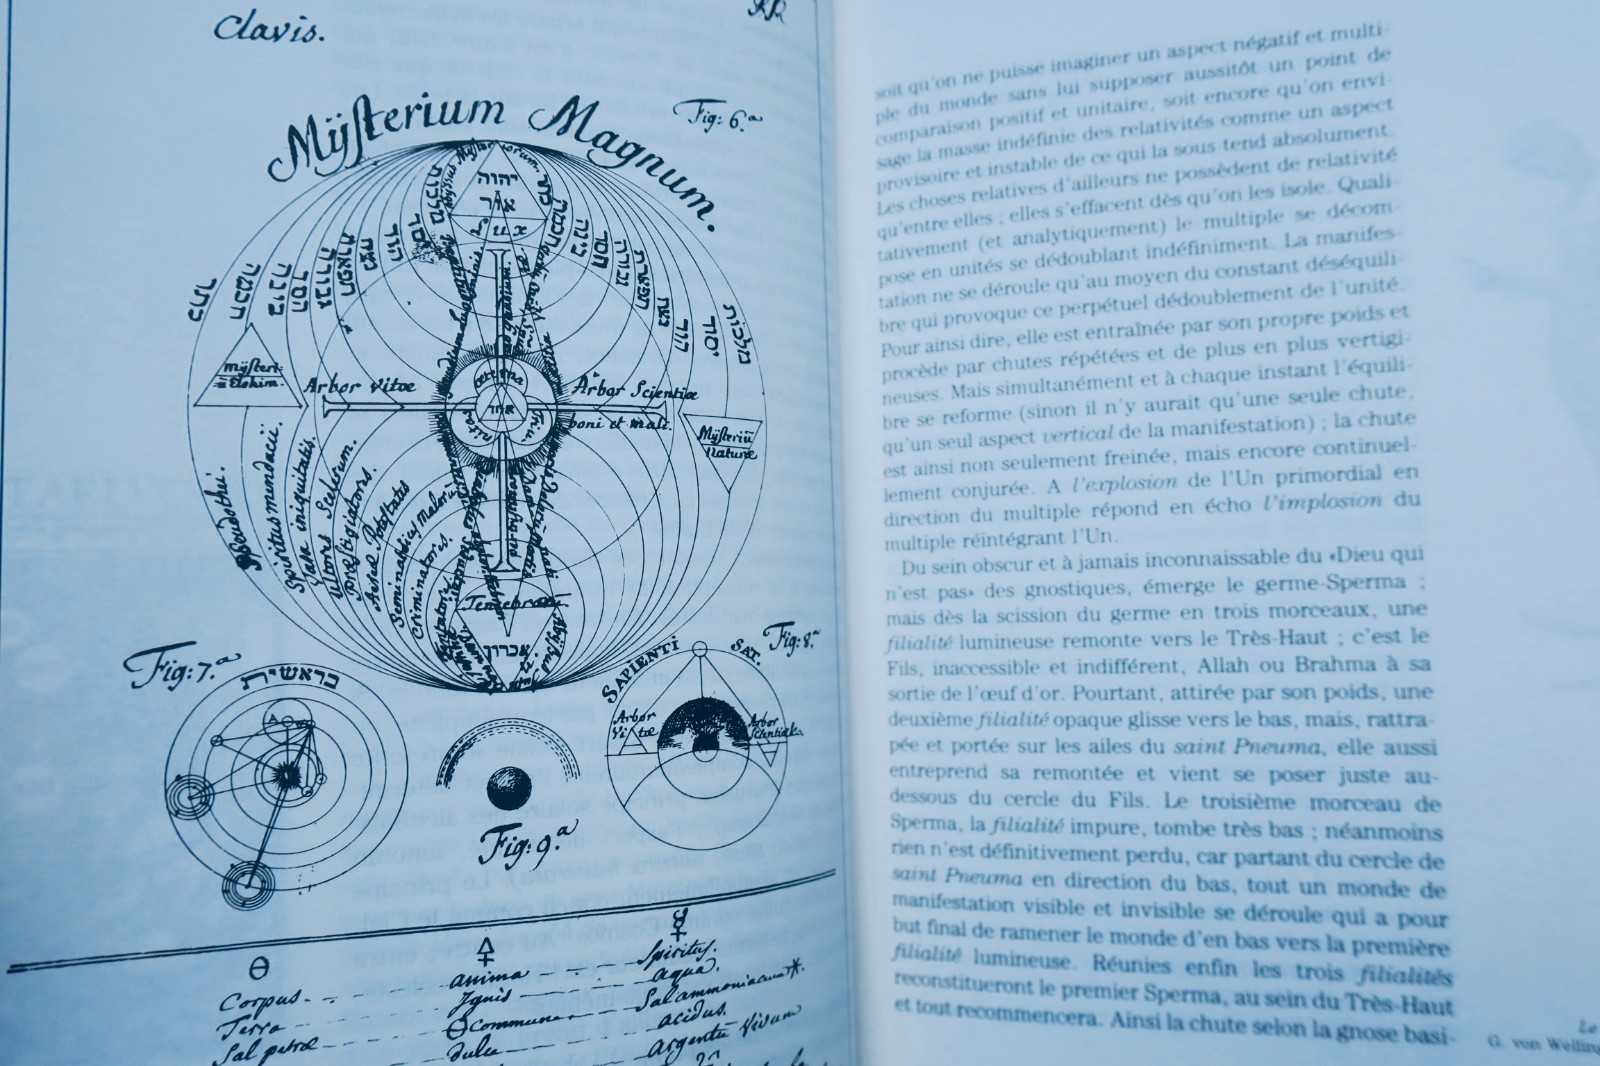 Clavis.
Mÿsterium Magnum.
Fig: 6.a
Abyssus Myster iorum.
יהוה
אור
Lux
כתר
חכמה
בינה
חסד
גבורה
תפארת
נצח
הוד
מלכות
כתר
חכמה
בינה
חסד
גבורה
תפארת
נצח
הוד
יסוד
מלכות
Mÿsteri:
Elohim.
Arbor vitæ
Arbor Scientiæ
boni et mali.
Mÿsteriũ
Naturæ
æterna
Trini
nitas
Pseudothei.
Spiritus mendacii.
Vasa iniquitatis.
Ultores Scelerum.
Præstigiatores.
Aëreæ Potestates
Criminatores.
Tenebrarũ
Fig: 7.a
בראשית
A
SAPIENTI SAT.
Fig: 8.a
Arbor
Vitæ
Arbor
Scientiæ
Fig: 9.a
Corpus. anima Spiritus.
Terra Ignis aqua.
Sal petræ commune Sal ammoniacum
dulce acidus.
argentũ vivum
soit qu'on ne puisse imaginer un aspect négatif et multi-
ple du monde sans lui supposer aussitôt un point de
comparaison positif et unitaire, soit encore qu'on envi-
sage la masse indéfinie des relativités comme un aspect
provisoire et instable de ce qui la sous-tend absolument.
Les choses relatives d'ailleurs ne possèdent de relativité
qu'entre elles ; elles s'effacent dès qu'on les isole. Quali-
tativement (et analytiquement) le multiple se décom-
pose en unités se dédoublant indéfiniment. La manifes-
tation ne se déroule qu'au moyen du constant déséquili-
bre qui provoque ce perpétuel dédoublement de l'unité.
Pour ainsi dire, elle est entraînée par son propre poids et
procède par chutes répétées et de plus en plus vertigi-
neuses. Mais simultanément et à chaque instant l'équili-
bre se reforme (sinon il n'y aurait qu'une seule chute,
qu'un seul aspect vertical de la manifestation) ; la chute
est ainsi non seulement freinée, mais encore continuel-
lement conjurée. A l'explosion de l'Un primordial en
direction du multiple répond en écho l'implosion du
multiple réintégrant l'Un.
Du sein obscur et à jamais inconnaissable du «Dieu qui
n'est pas» des gnostiques, émerge le germe-Sperma ;
mais dès la scission du germe en trois morceaux, une
filialité lumineuse remonte vers le Très-Haut ; c'est le
Fils, inaccessible et indifférent, Allah ou Brahma à sa
sortie de l'œuf d'or. Pourtant, attirée par son poids, une
deuxième filialité opaque glisse vers le bas, mais, rattra-
pée et portée sur les ailes du saint Pneuma, elle aussi
entreprend sa remontée et vient se poser juste au-
dessous du cercle du Fils. Le troisième morceau de
Sperma, la filialité impure, tombe très bas ; néanmoins
rien n'est définitivement perdu, car partant du cercle de
saint Pneuma en direction du bas, tout un monde de
manifestation visible et invisible se déroule qui a pour
but final de ramener le monde d'en bas vers la première
filialité lumineuse. Réunies enfin les trois filialités
reconstitueront le premier Sperma, au sein du Très-Haut
et tout recommencera. Ainsi la chute selon la gnose basi-
Le
G. von Welling